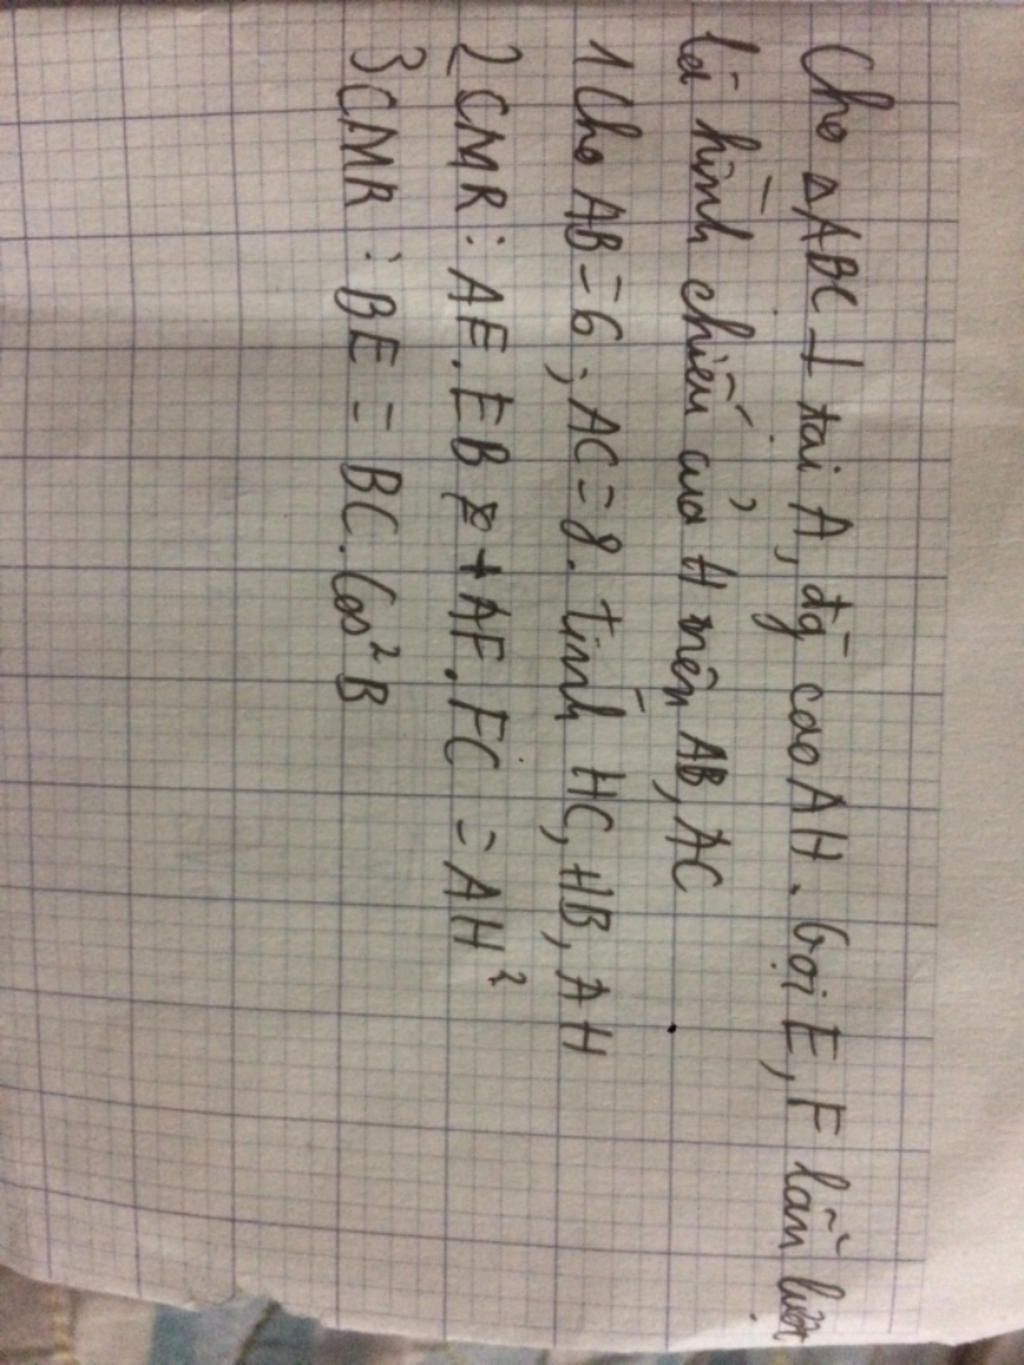 Cho ΔABC ⊥ tại A, đg cao AH. Gọi E, F lần lượt
là hình chiếu của H trên AB, AC
1 Cho AB = 6; AC = 8. Tính HC, HB, AH
2 CMR : AE . EB + AF . FC = AH²
3 CMR : BE = BC. Cos²B